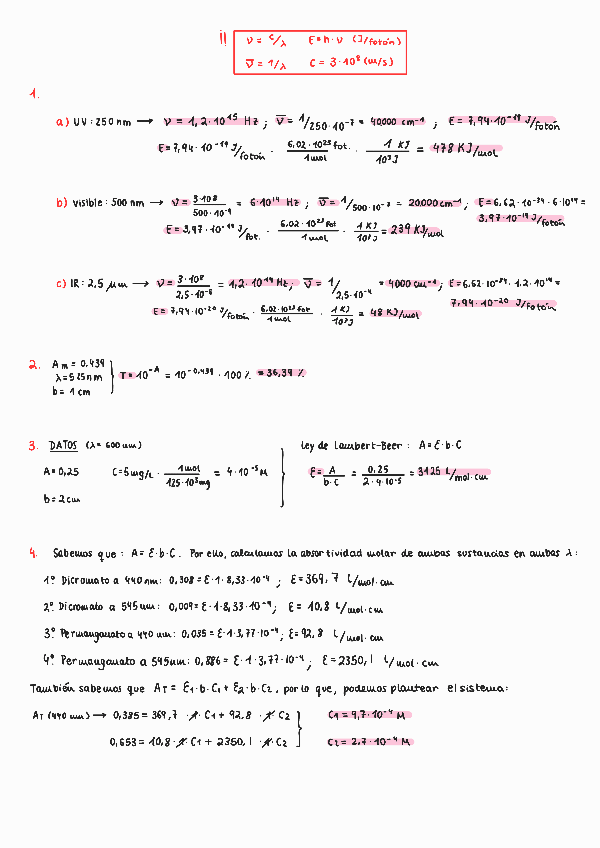 ¡! ν = c/λ   E = h·ν (J/fotón)
ν̅ = 1/λ   C = 3·10⁸ (m/s)
1.
a) UV: 250 nm ⟶ ν = 1,2·10¹⁵ Hz ; ν̅ = 1/250·10⁻⁷ = 40,000 cm⁻¹ ; E = 7,94·10⁻¹⁹ J/fotón
E = 7,94·10⁻¹⁹ J/fotón · 6,02·10²³ fot./1 mol · 1 KJ/10³ J = 478 KJ/mol
b) visible: 500 nm ⟶ ν = 3·10⁸/500·10⁻⁹ = 6·10¹⁴ Hz ; ν̅ = 1/500·10⁻⁷ = 20,000 cm⁻¹ ; E = 6,62·10⁻³⁴ · 6·10¹⁴ =
3,97·10⁻¹⁹ J/fotón
E = 3,97·10⁻¹⁹ J/fot. · 6,02·10²³ fot/1 mol · 1 KJ/10³ J = 239 KJ/mol
c) IR: 2,5 μm ⟶ ν = 3·10⁸/2,5·10⁻⁶ = 1,2·10¹⁴ Hz ; ν̅ = 1/2,5·10⁻⁴ = 4000 cm⁻¹ ; E = 6,62·10⁻³⁴ · 1,2·10¹⁴ =
7,94·10⁻²⁰ J/fotón
E = 7,94·10⁻²⁰ J/fotón · 6,02·10²³ fot./1 mol · 1 KJ/10³ J = 48 KJ/mol
2. Am = 0,439
λ = 525 nm
b = 1 cm
T = 10⁻ᴬ = 10⁻⁰·⁴³⁹ · 100 % = 36,39 %
3. DATOS (λ = 600 nm)   Ley de Lambert-Beer: A = ε·b·C
A = 0,25   C = 5 mg/L · 1 mol/125·10³ mg = 4·10⁻⁵ M   ε = A/b·C = 0,25/2·4·10⁻⁵ = 3125 L/mol·cm
b = 2 cm
4. Sabemos que: A = ε·b·C. Por ello, calculamos la absortividad molar de ambas sustancias en ambas λ:
1º. Dicromato a 440 nm: 0,308 = ε·1·8,33·10⁻⁴ ; ε = 369,7 L/mol·cm
2º. Dicromato a 545 nm: 0,009 = ε·1·8,33·10⁻⁴ ; ε = 10,8 L/mol·cm
3º. Permanganato a 440 nm: 0,035 = ε·1·3,77·10⁻⁴ ; ε = 92,8 L/mol·cm
4º. Permanganato a 545 nm: 0,886 = ε·1·3,77·10⁻⁴ ; ε = 2350,1 L/mol·cm
También sabemos que AT = ε1·b·C1 + ε2·b·C2, por lo que, podemos plantear el sistema:
AT (440 nm) ⟶ 0,385 = 369,7 · 1 · C1 + 92,8 · 1 · C2   C1 = 9,7·10⁻⁴ M
0,653 = 10,8 · 1 · C1 + 2350,1 · 1 · C2   C2 = 2,7·10⁻⁴ M